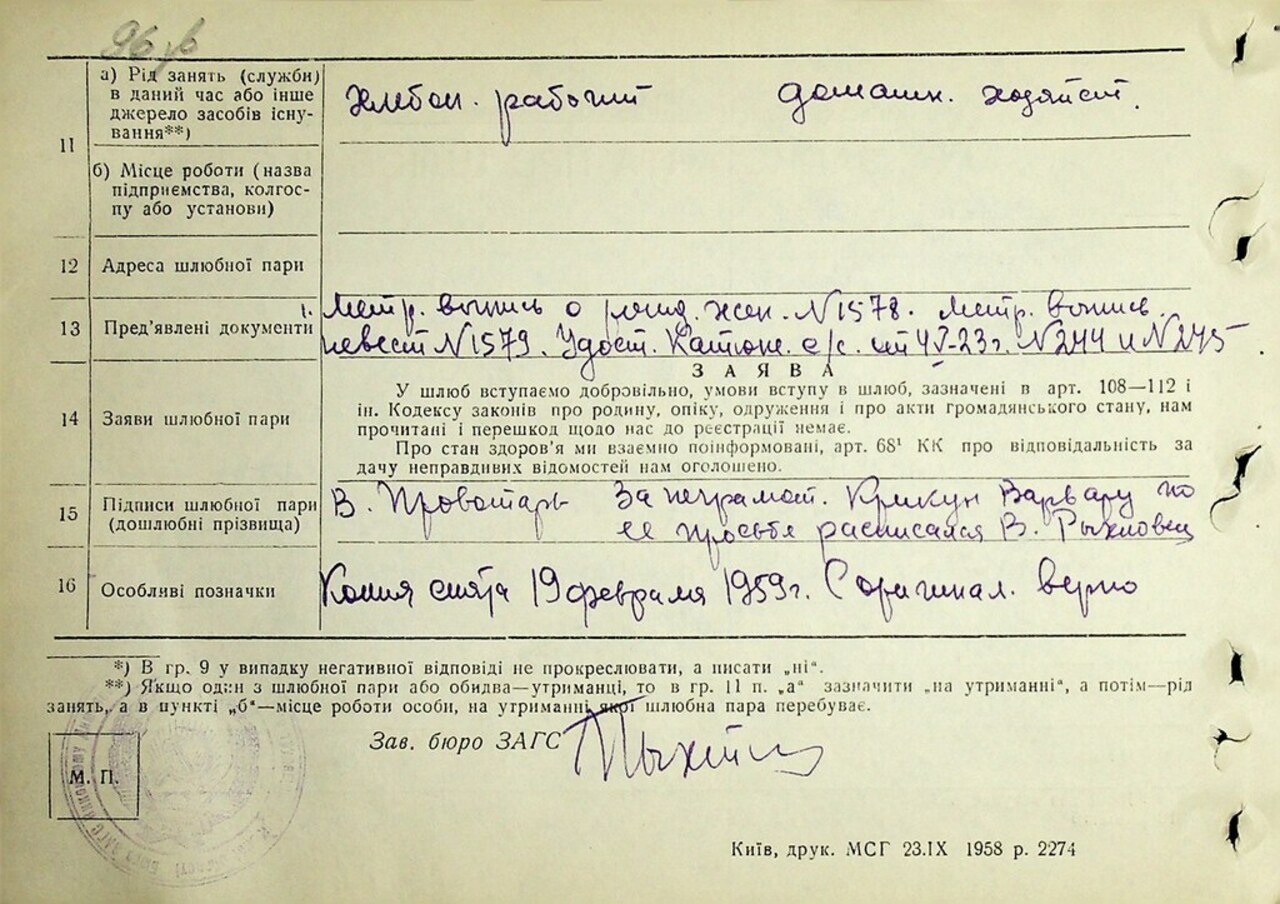 11
а) Рід занять (служби)
в даний час або інше
джерело засобів існу-
вання**)
хлебоп. рабочий домашн. хозяйст.
б) Місце роботи (назва
підприємства, колгос-
пу або установи)
12 Адреса шлюбної пари
13 Пред'явлені документи
1. Метр. выпись о рожд. жен. N1578. Метр. выпись
невест N1579. Удост. с/с. N244 и N245
З А Я В А
14 Заяви шлюбної пари
У шлюб вступаємо добровільно, умови вступу в шлюб, зазначені в арт. 108—112 і
ін. Кодексу законів про родину, опіку, одруження і про акти громадянського стану, нам
прочитані і перешкод щодо нас до реєстрації немає.
Про стан здоров'я ми взаємно поінформовані, арт. 68¹ КК про відповідальність за
дачу неправдивих відомостей нам оголошено.
15 Підписи шлюбної пари
(дошлюбні прізвища)
В. Провотарь За неграмот. Крикун Варвару по
ее просьбе расписался В.
16 Особливі позначки
Копия снята 19 февраля 1959г. С оригинал. верно
*) В гр. 9 у випадку негативної відповіді не прокреслювати, а писати „ні“.
**) Якщо один з шлюбної пари або обидва—утриманці, то в гр. 11 п. „а“ зазначити „на утриманні“, а потім—рід
занять, а в пункті „б“—місце роботи особи, на утриманні якої шлюбна пара перебуває.
Зав. бюро ЗАГС
М. П.
Київ, друк. МСГ 23.IX 1958 р. 2274